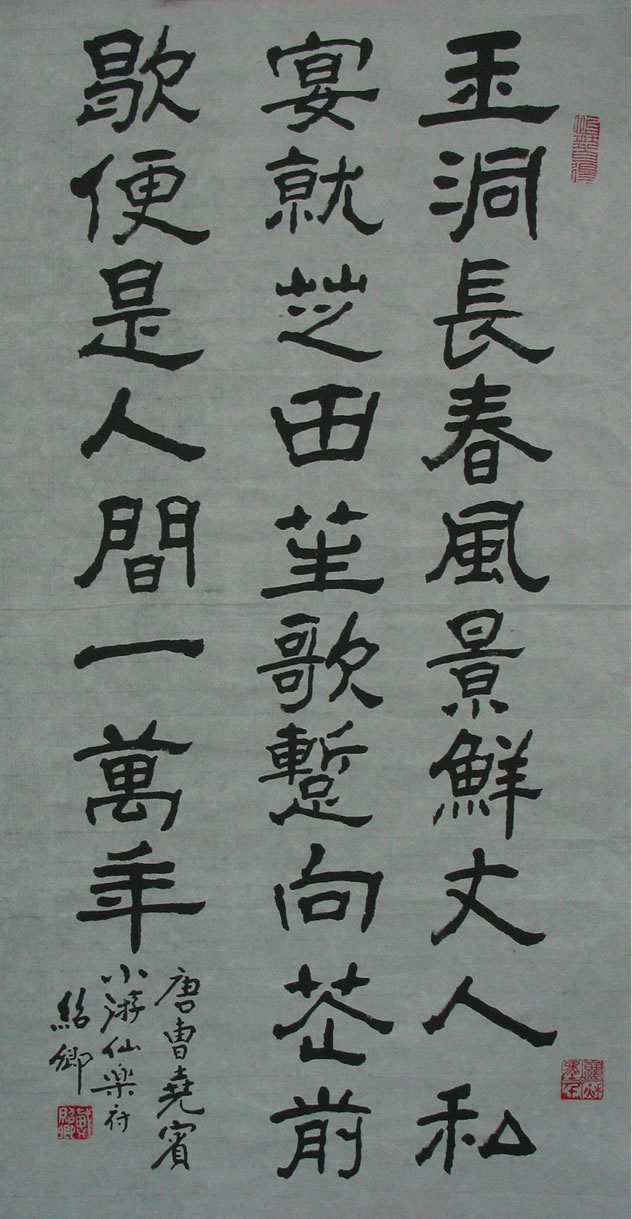 玉洞長春風景鮮丈人私
宴就芝田笙歌蹔向花前
歇便是人間一萬年
唐曹堯賓
小游仙樂府
紹卿